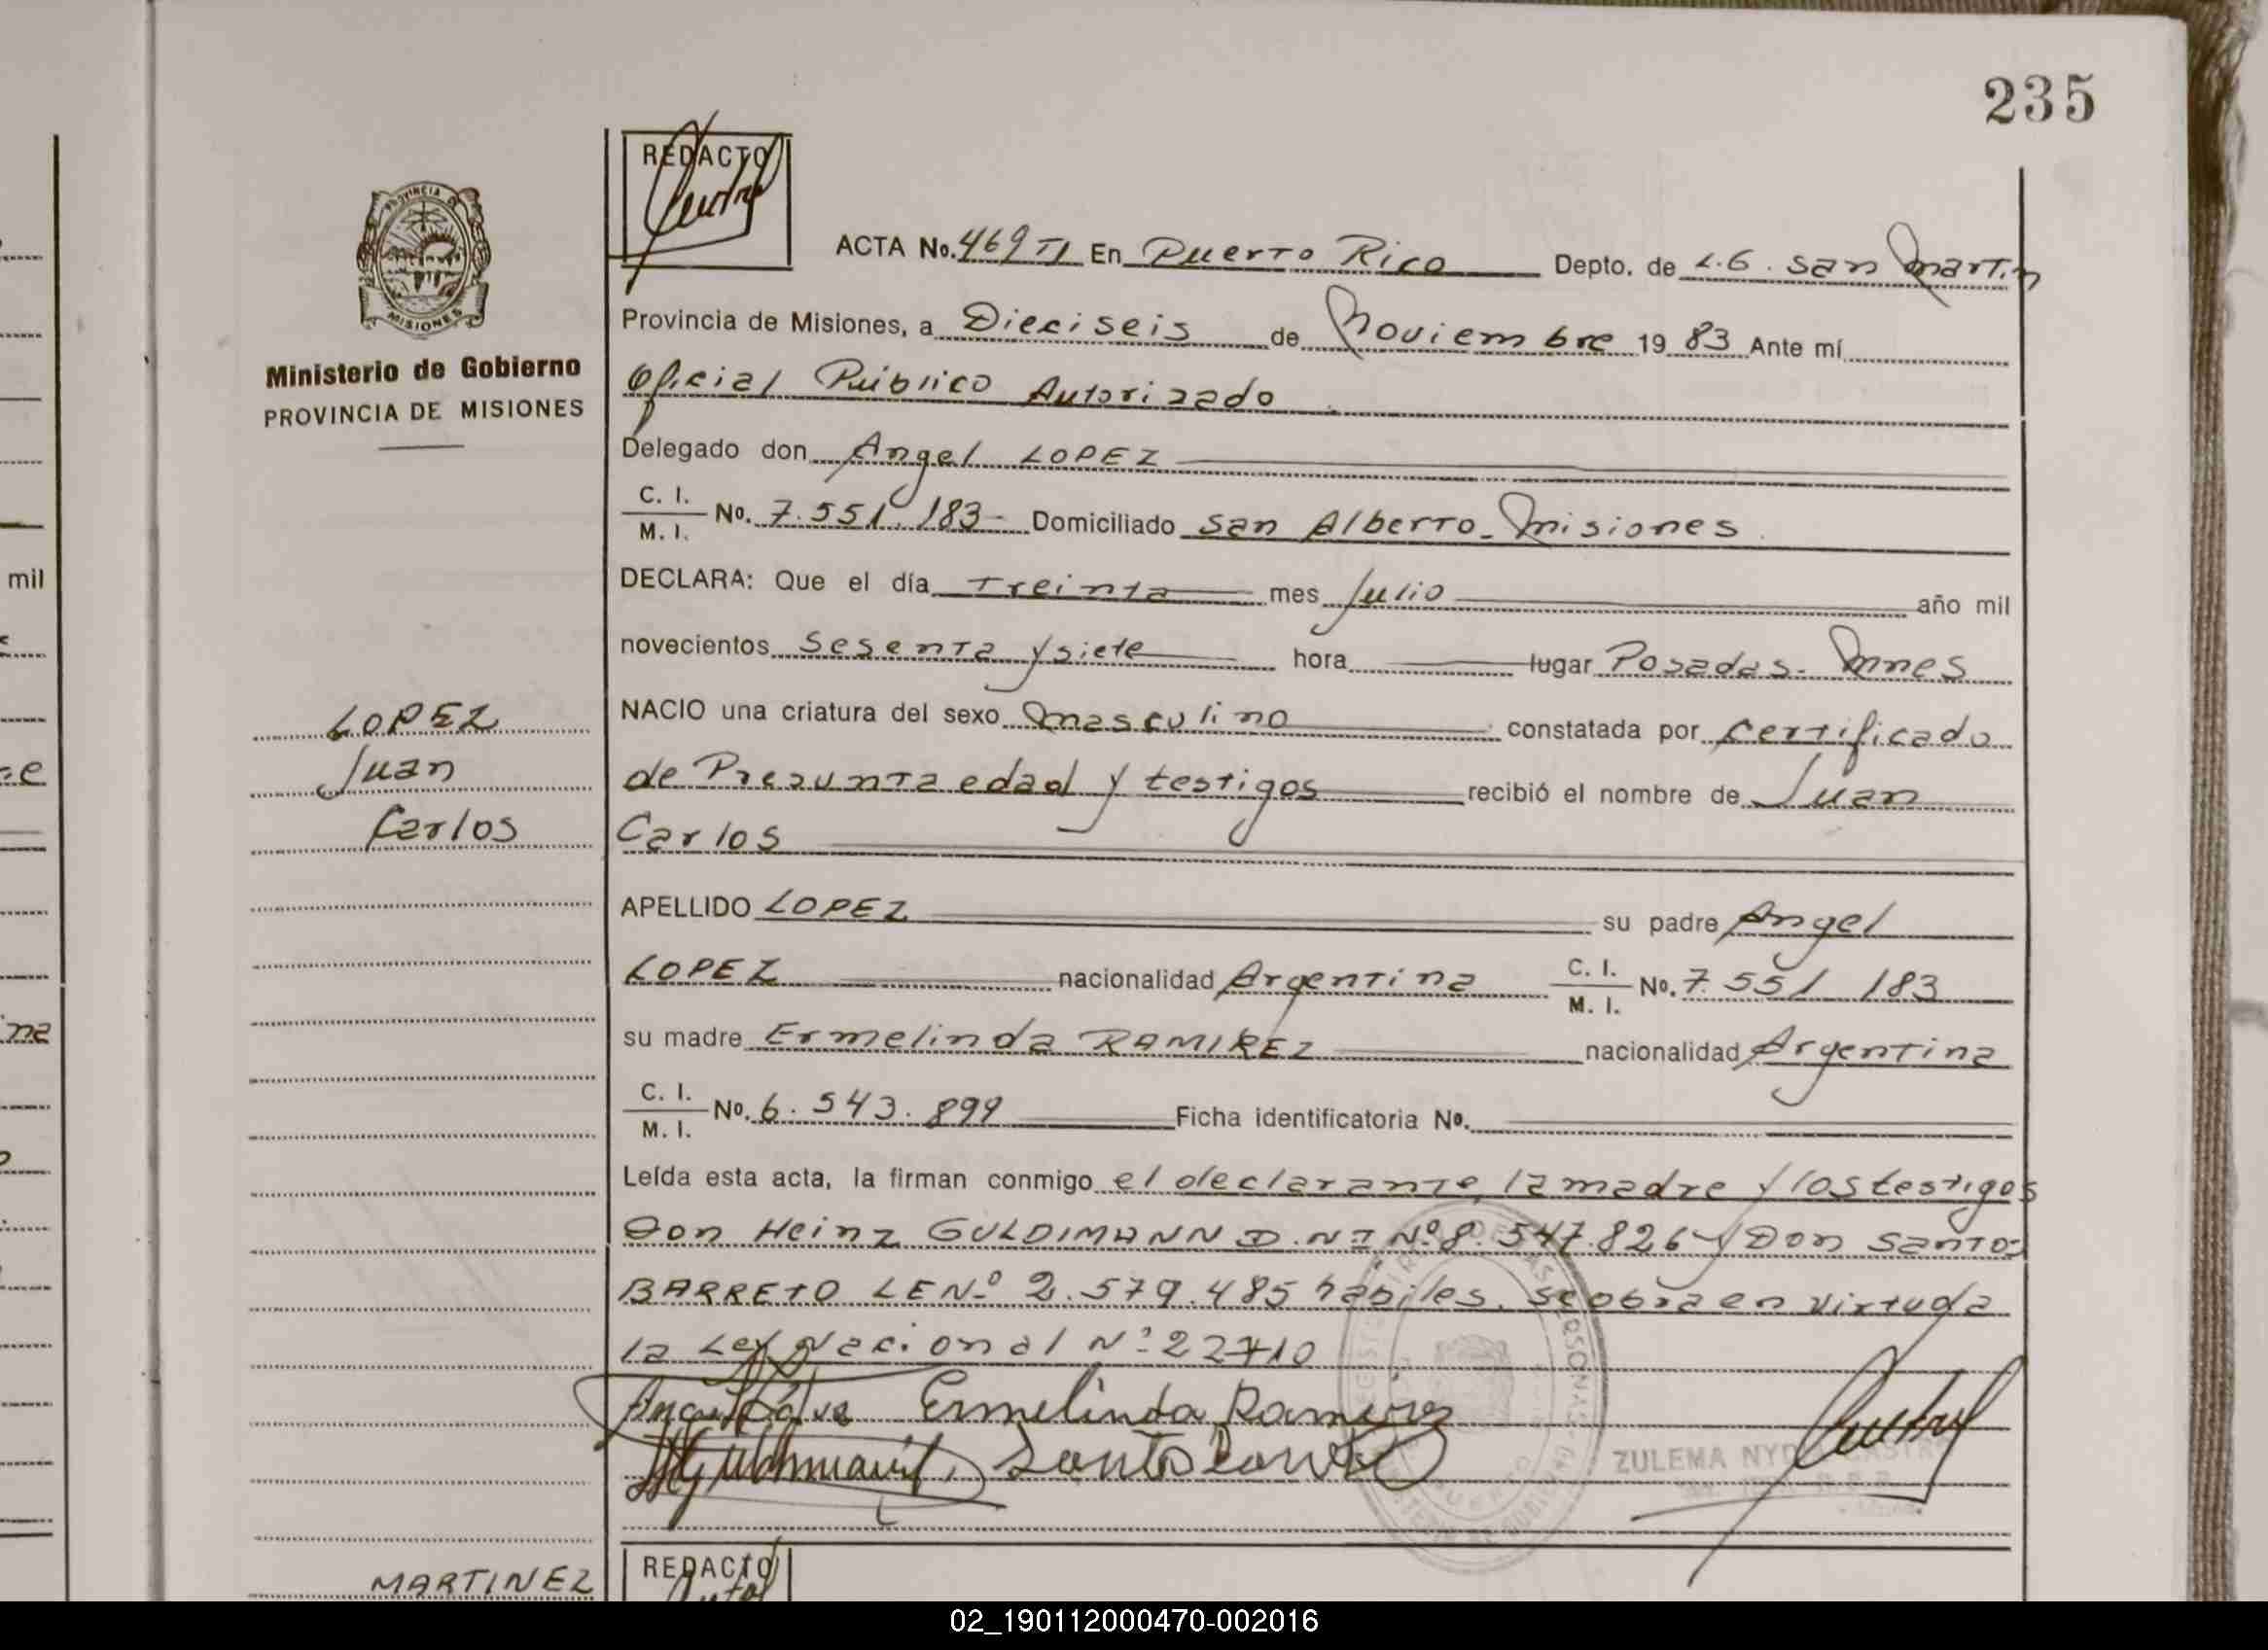 235
REDACTO
PROVINCIA DE
MISIONES
Ministerio de Gobierno
PROVINCIA DE MISIONES
ACTA No. 469 TI En Puerto Rico Depto. de L.G. San Martin
Provincia de Misiones, a Dieciseis de Noviembre 1983 Ante mí
Oficial Público Autorizado
Delegado don Angel LOPEZ
C. I.
M. I. No. 7.551.183 Domiciliado San Alberto - Misiones
DECLARA: Que el día Treinta mes Julio año mil
novecientos Sesenta y siete hora lugar Posadas - Mnes
NACIO una criatura del sexo Masculino constatada por certificado
de Presunta edad y testigos recibió el nombre de Juan
Carlos
APELLIDO LOPEZ su padre Angel
LOPEZ nacionalidad Argentina C. I.
M. I. No. 7.551 183
su madre Ermelinda RAMIREZ nacionalidad Argentina
C. I.
M. I. No. 6.543.899 Ficha identificatoria No.
Leída esta acta, la firman conmigo el declarante, la madre y los testigos
Don Heinz GULDIMANN D.N.I Nº 8.547.826 y Don Santos
BARRETO LE Nº 2.579.485 habiles. Se obra en virtud a
la Ley Nacional Nº 22710
Ermelinda Ramirez
ZULEMA NYD
LOPEZ
Juan
Carlos
MARTINEZ
REDACTO
mil
ne
02_190112000470-002016